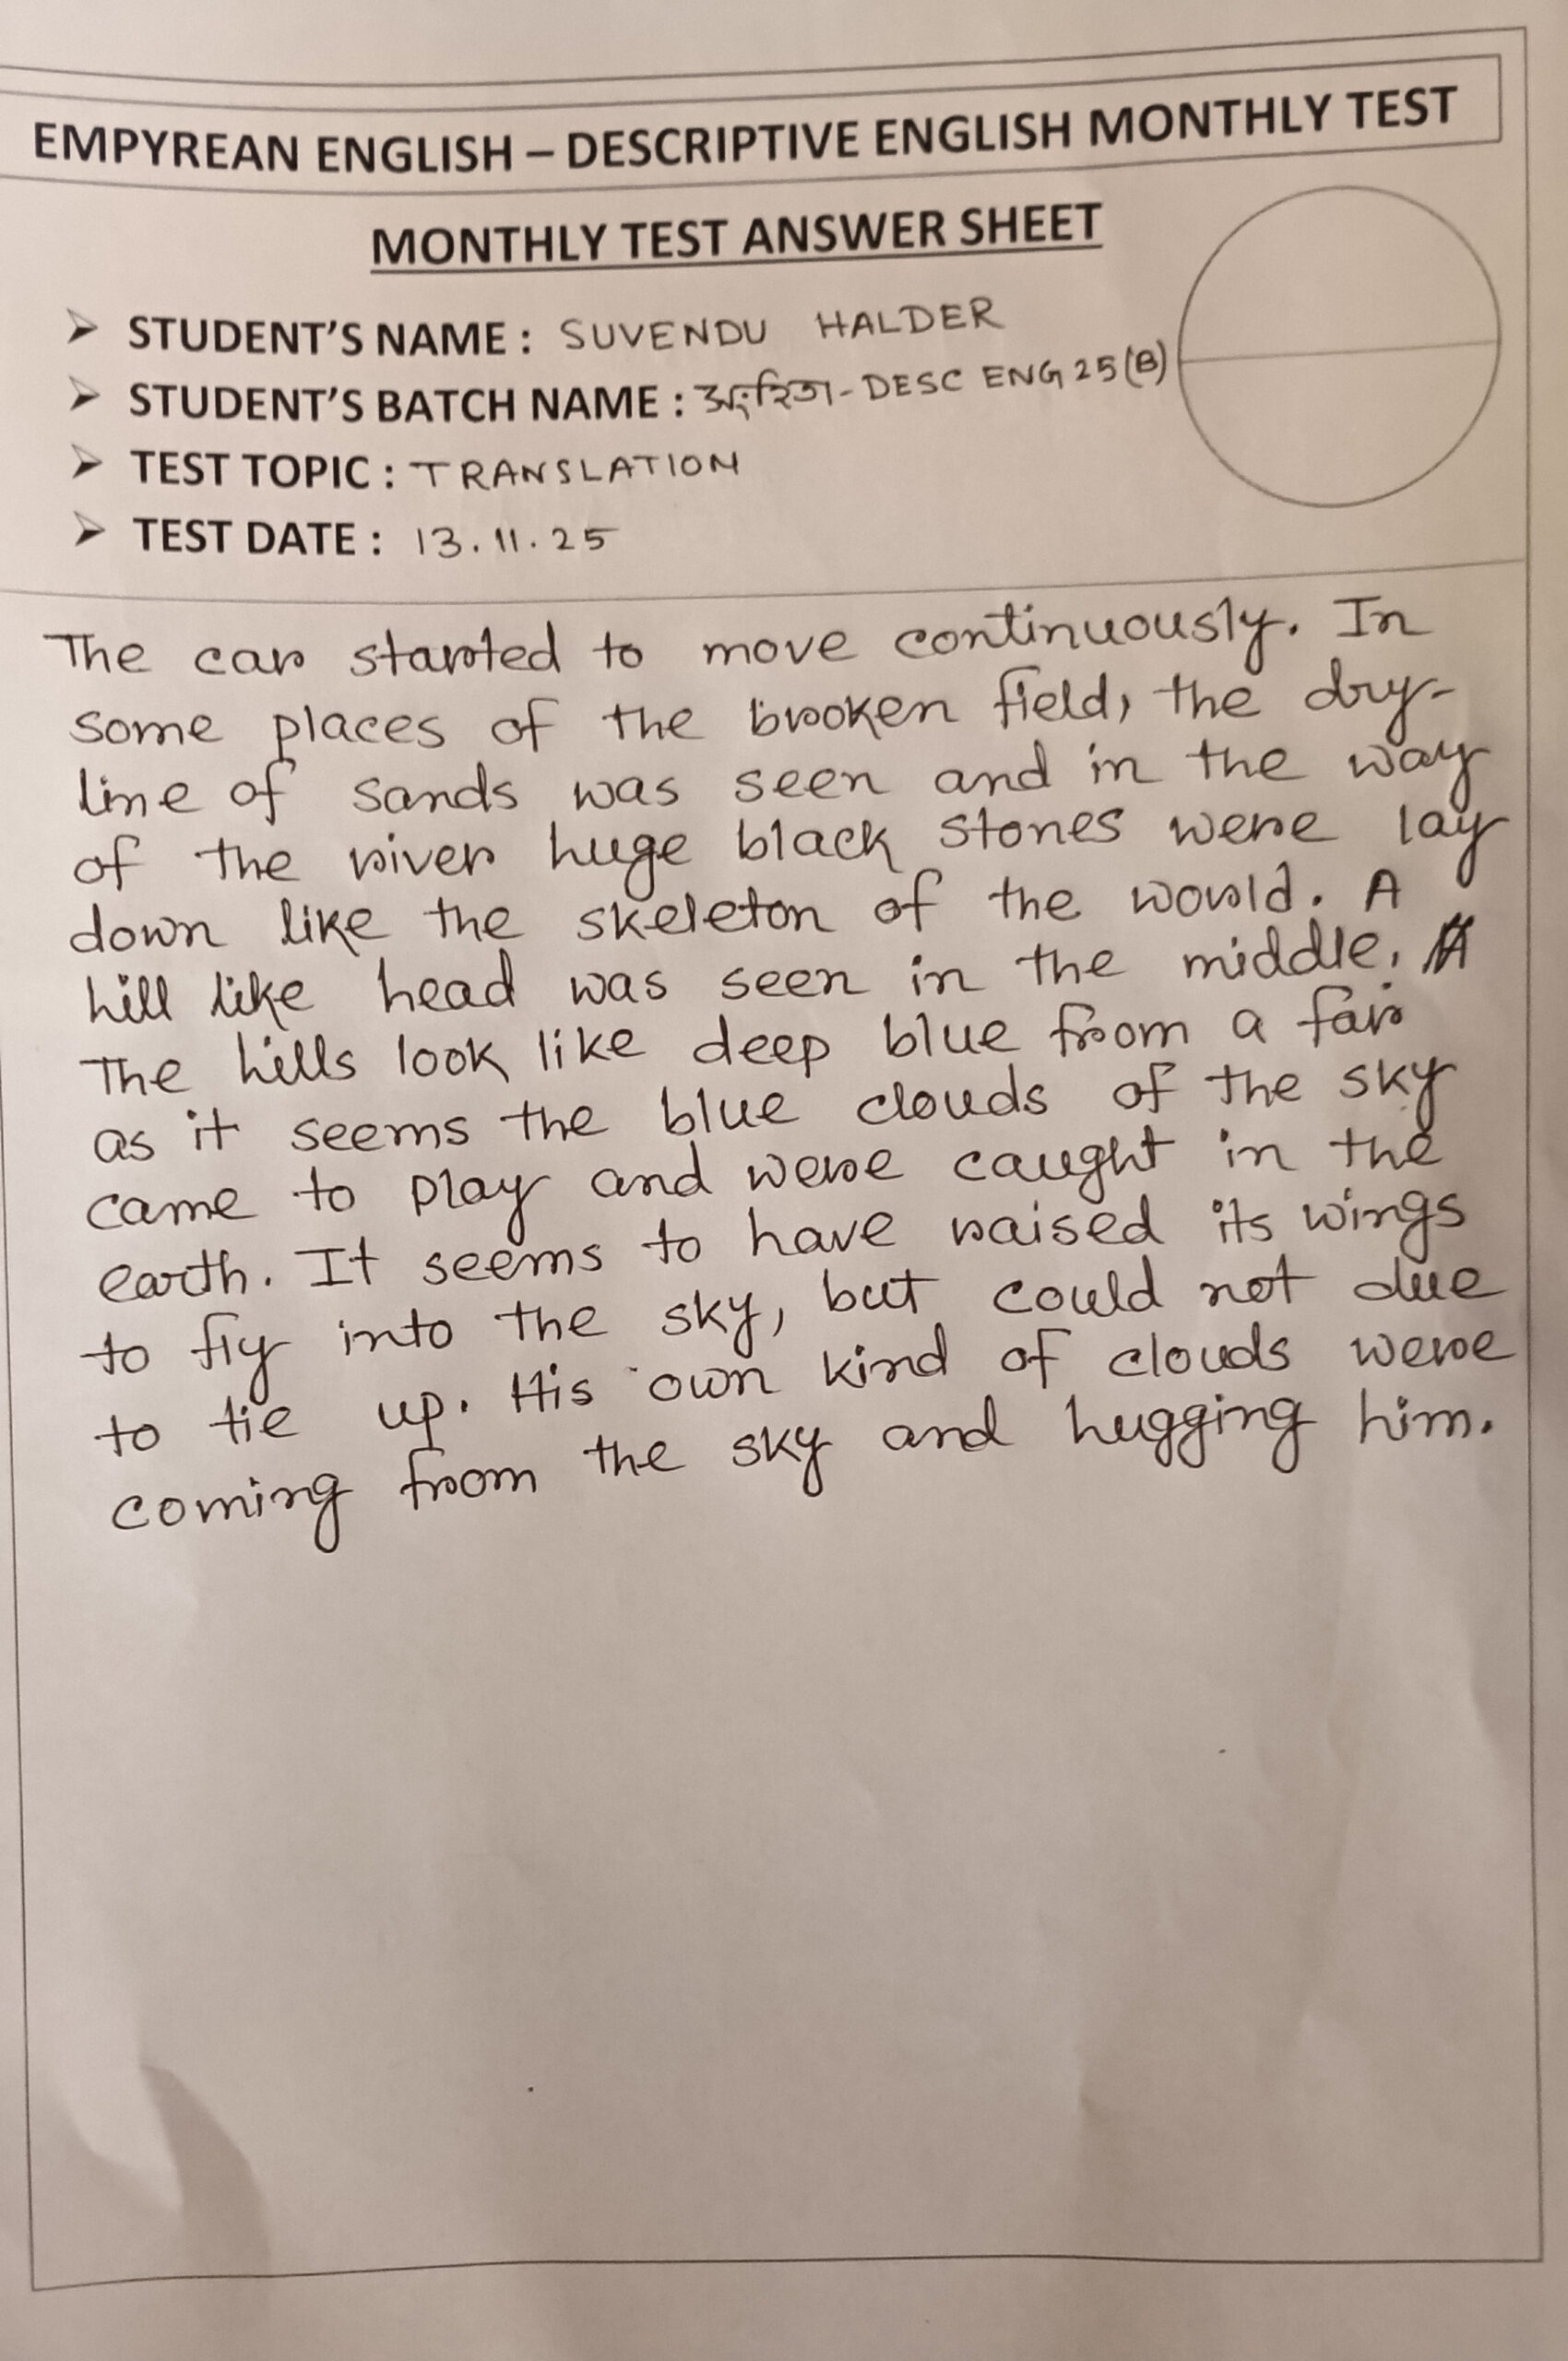 EMPYREAN ENGLISH – DESCRIPTIVE ENGLISH MONTHLY TEST
MONTHLY TEST ANSWER SHEET
➢ STUDENT'S NAME : SUVENDU HALDER
➢ STUDENT'S BATCH NAME : - DESC ENG 25(B)
➢ TEST TOPIC : TRANSLATION
➢ TEST DATE : 13.11.25
The car started to move continuously. In
some places of the broken field, the dry-
line of sands was seen and in the way
of the river huge black stones were lay
down like the skeleton of the world. A
hill like head was seen in the middle.
The hills look like deep blue from a far
as it seems the blue clouds of the sky
came to play and were caught in the
earth. It seems to have raised its wings
to fly into the sky, but could not due
to tie up. His own kind of clouds were
coming from the sky and hugging him.